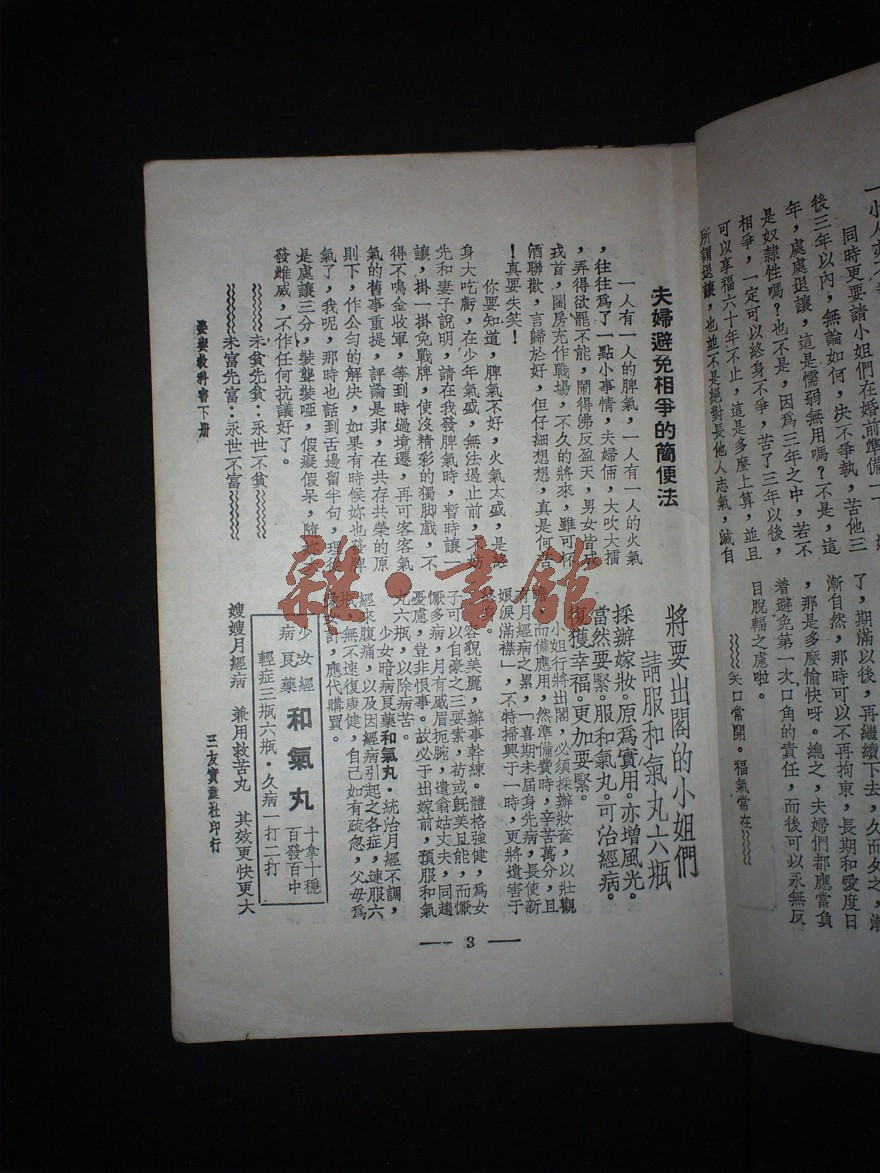 一小人亦不
同時更要請小姐們在婚前準備一
後三年以內，無論如何，決不爭執，苦他三
年，處處退讓，這是懦弱無用嗎？不是，這
是奴隸性嗎？也不是，因爲三年之中，若不
相爭，一定可以終身不爭，苦了三年以後，
可以享福六十年不止，這是多麼上算，並且
所謂退讓，也並不是絕對長他人志氣，滅自
了，期滿以後，再繼續下去，久而久之，漸
漸自然，那時可以不再拘束，長期和愛度日
，那是多麼愉快呀。總之，夫婦們都應當負
着避免第一次口角的責任，而後可以永無反
目脫輻之慮啦。
矢口常開。福氣常在
夫婦避免相爭的簡便法
一人有一人的脾氣，一人有一人的火氣
，往往爲了一點小事情，夫婦倆，大吹大擂
，弄得欲罷不能，鬧得沸反盈天，男女皆成
戎首，閨房充作戰場，不久的將來，雖可杯
酒聯歡，言歸於好，但仔細想想，真是何苦
！真要失笑！
你要知道，脾氣不好，火氣太盛，是終
身大吃虧，在少年氣盛，無法遏止前，不妨
先和妻子說明，請在我發脾氣時，暫時讓一
讓，掛一掛免戰牌，使沒精彩的獨脚戲，不
得不鳴金收軍，等到時過境遷，再可客客氣
氣的舊事重提，評論是非，在共存共榮的原
則下，作公勻的解決，如果有時候妳也發脾
氣了，我呢，那時也話到舌邊留半句，理從
是處讓三分，裝聾裝啞，假癡假呆，隨妳
發雌威，不作任何抗議好了。
未貧先貧：永世不貧
未富先富：永世不富
妻妾教科書下册
將要出閣的小姐們
請服和氣丸六瓶
採辦嫁妝。原爲實用。亦增風光。
當然要緊。服和氣丸。可治經病。
復獲幸福。更加要緊。
小姐行將出閣，必須採辦妝奩，以壯觀
瞻，而備應用，然準備費時，辛苦萬分，且
有月經病之累，「喜期未屆身先病，長使新
娘淚滿襟」，不特掃興于一時，更將遺害于
容貌美麗，辦事幹練。體格強健，爲女
子可以自豪之三要素，苟或既美且能，而懨
懨多病，月有顰眉扼腕，遺翁姑丈夫，同趨
憂慮，豈非恨事。故必于出嫁前，預服和氣
丸六瓶，以除病苦。
少女暗病良藥和氣丸。統治月經不調，
經來腹痛，以及因經病引起之各症，連服六
瓶，無不速復康健，自己如有疏忽，父母爲
計，應代購買。
少女經
病良藥
和氣丸
十拿十穩
百發百中
輕症三瓶六瓶・久病一打二打
嫂嫂月經病　兼用救苦丸　其效更快更大
三友實業社印行
3
雜・書館